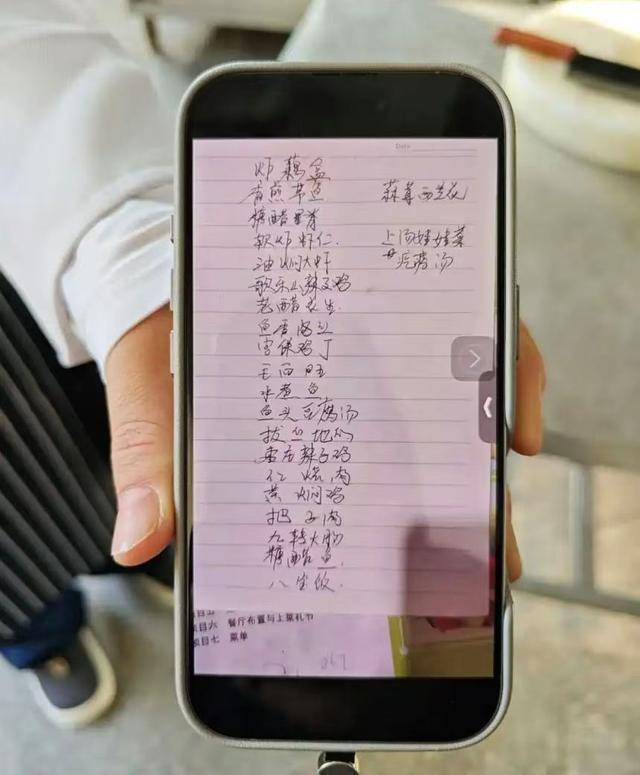 Date
炸藕盒
香煎带鱼
糖醋里脊
软炸虾仁.
油焖大虾
歌乐山辣子鸡
老醋花生.
鱼香肉丝
宫保鸡丁
毛血旺
水煮鱼
鱼头豆腐汤
拔丝地瓜
重庆辣子鸡
红烧肉
黄焖鸡
把子肉
九转大肠
糖醋鱼.
蒜蓉西兰花
上汤娃娃菜
疙瘩汤
项目六 餐厅布置与上菜礼节
项目七 菜单